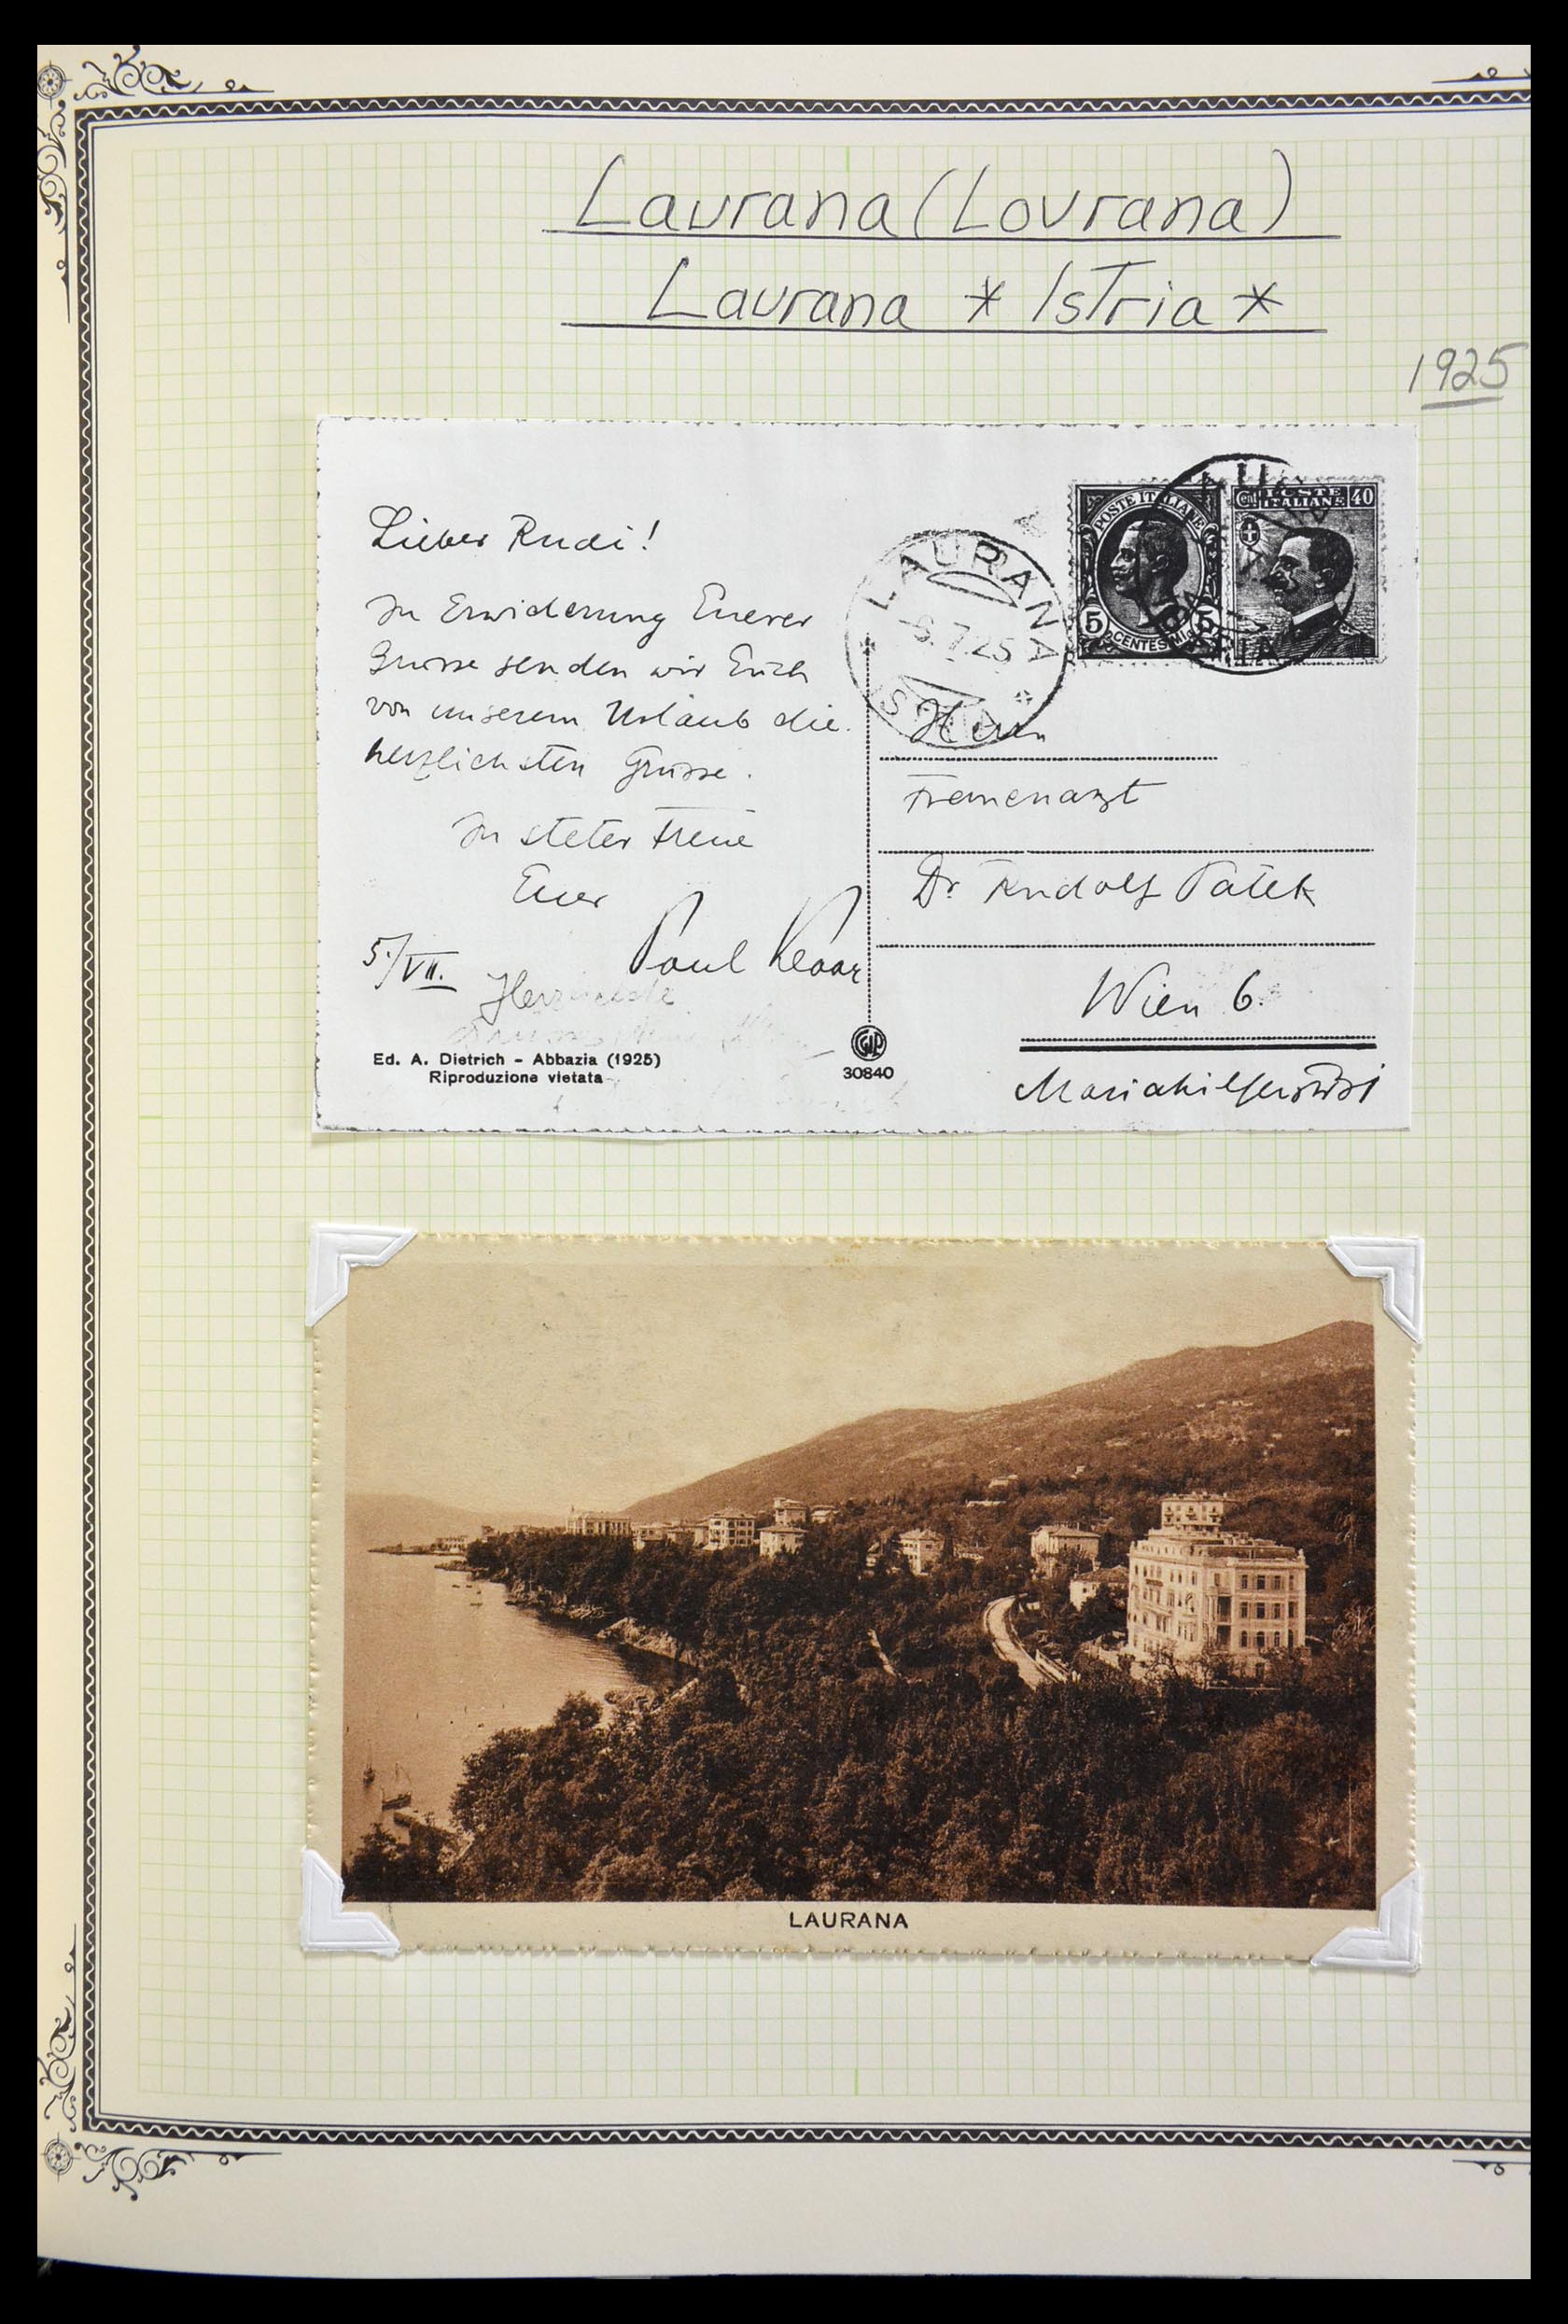 Laurana (Lovrana)
Laurana * Istria *
1925
Lieber Rudi!
In Erwiderung Euerer
Grüsse senden wir Euch
von unserem Urlaub die
herzlichsten Grüsse.
In steter Treue
Euer
Paul
5./VII.
Ed. A. Dietrich - Abbazia (1925)
Riproduzione vietata
30840
LAURANA
6.7.25
POSTE ITALIANE
5 5
CENTESIMI
Cent POSTE 40
ITALIANE
Herrn
Frauenarzt
Dr Rudolf
Wien 6.
LAURANA